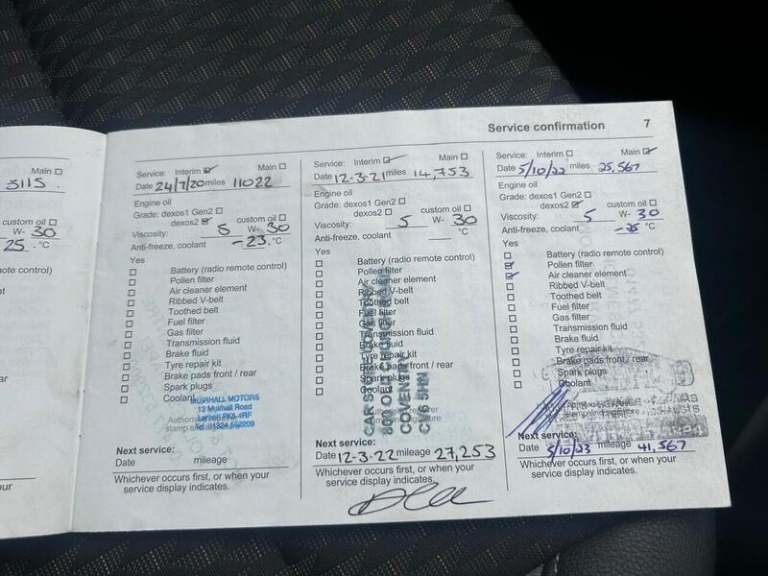 Service confirmation 7
Main
3115.
custom oil
W- 30
25. °C
ote control)
Service: Interim Main
Date 24/7/20 miles 11022
Engine oil
Grade: dexos1 Gen2
dexos2 custom oil
Viscosity: 5 W- 30
Anti-freeze, coolant -23. °C
Yes
Battery (radio remote control)
Pollen filter
Air cleaner element
Ribbed V-belt
Toothed belt
Fuel filter
Gas filter
Transmission fluid
Brake fluid
Tyre repair kit
Brake pads front / rear
Spark plugs
Coolant
MUIRHALL MOTORS
13 Muirhall Road
Larbert FK5 4RF
Next service:
Date mileage
Whichever occurs first, or when your
service display indicates.
Service: Interim Main
Date 12-3-21 miles 14,753
Engine oil
Grade: dexos1 Gen2
dexos2 custom oil
Viscosity: 5 W- 30
Anti-freeze, coolant °C
Yes
Battery (radio remote control)
Pollen filter
Air cleaner element
Ribbed V-belt
Toothed belt
Fuel filter
Gas filter
Transmission fluid
Brake fluid
Tyre repair kit
Brake pads front / rear
Spark plugs
Coolant
COVENTRY
CV6 5HN
Next service:
Date 12-3-22 mileage 27,253
Whichever occurs first, or when your
service display indicates.
Service: Interim Main
Date 5/10/22 miles 25,567
Engine oil
Grade: dexos1 Gen2
dexos2 custom oil
Viscosity: 5 W- 30
Anti-freeze, coolant °C
Yes
Battery (radio remote control)
Pollen filter
Air cleaner element
Ribbed V-belt
Toothed belt
Fuel filter
Gas filter
Transmission fluid
Brake fluid
Tyre repair kit
Brake pads front / rear
Spark plugs
Coolant
Next service:
Date 5/10/23 mileage 41,567
Whichever occurs first, or when your
service display indicates.